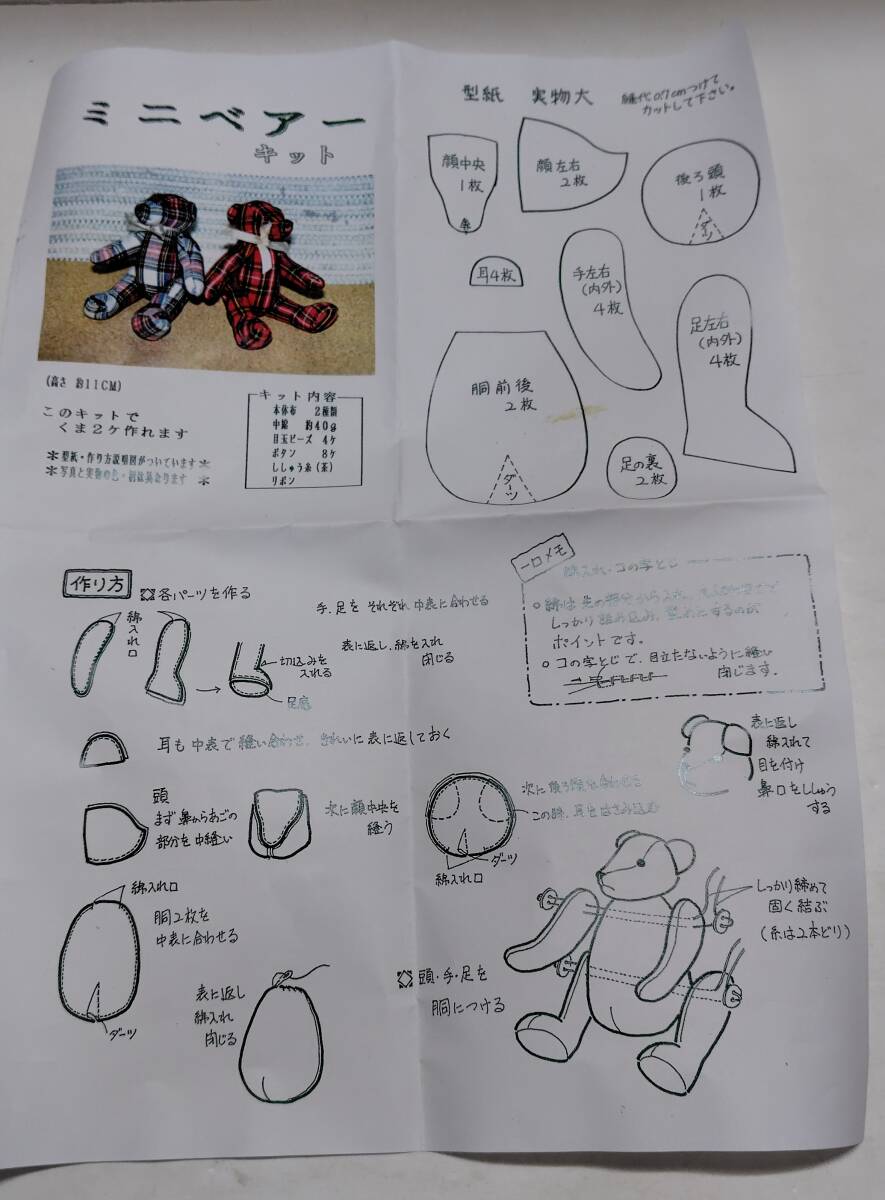 ミニベアー
キット
(高さ 約11CM)
このキットで
くま2ケ作れます
＊型紙・作り方説明図がついています＊
＊写真と実物の色・柄は異なります ＊
キット内容
本体布 2種類
中綿 約40g
目玉ビーズ 4ケ
ボタン 8ケ
ししゅう糸(茶)
リボン
型紙 実物大
縫代0.7cmつけて
カットして下さい。
顔中央
1枚
顔左右
2枚
後ろ頭
1枚
ダーツ
耳4枚
手左右
(内外)
4枚
足左右
(内外)
4枚
胴前後
2枚
ダーツ
足の裏
2枚
作り方
各パーツを作る
手、足をそれぞれ中表に合わせる
綿入れ口
切込みを
入れる
足底
表に返し、綿を入れ
閉じる
耳も中表で縫い合わせ、きれいに表に返しておく
頭
まず鼻からあごの
部分を中縫い
次に顔中央を
縫う
綿入れ口
胴2枚を
中表に合わせる
ダーツ
表に返し
綿入れ
閉じる
一口メモ
綿入れ・コの字とじ
○綿は先の部分から入れ、
しっかり詰め込み、
ポイントです。
○コの字とじで、目立たないように縫い
閉じます。
次に後ろ頭を合わせる
この時、耳をはさみ込む
ダーツ
綿入れ口
表に返し
綿入れて
目を付け
鼻口をししゅう
する
頭・手・足を
胴につける
しっかり締めて
固く結ぶ
(糸は2本どり)